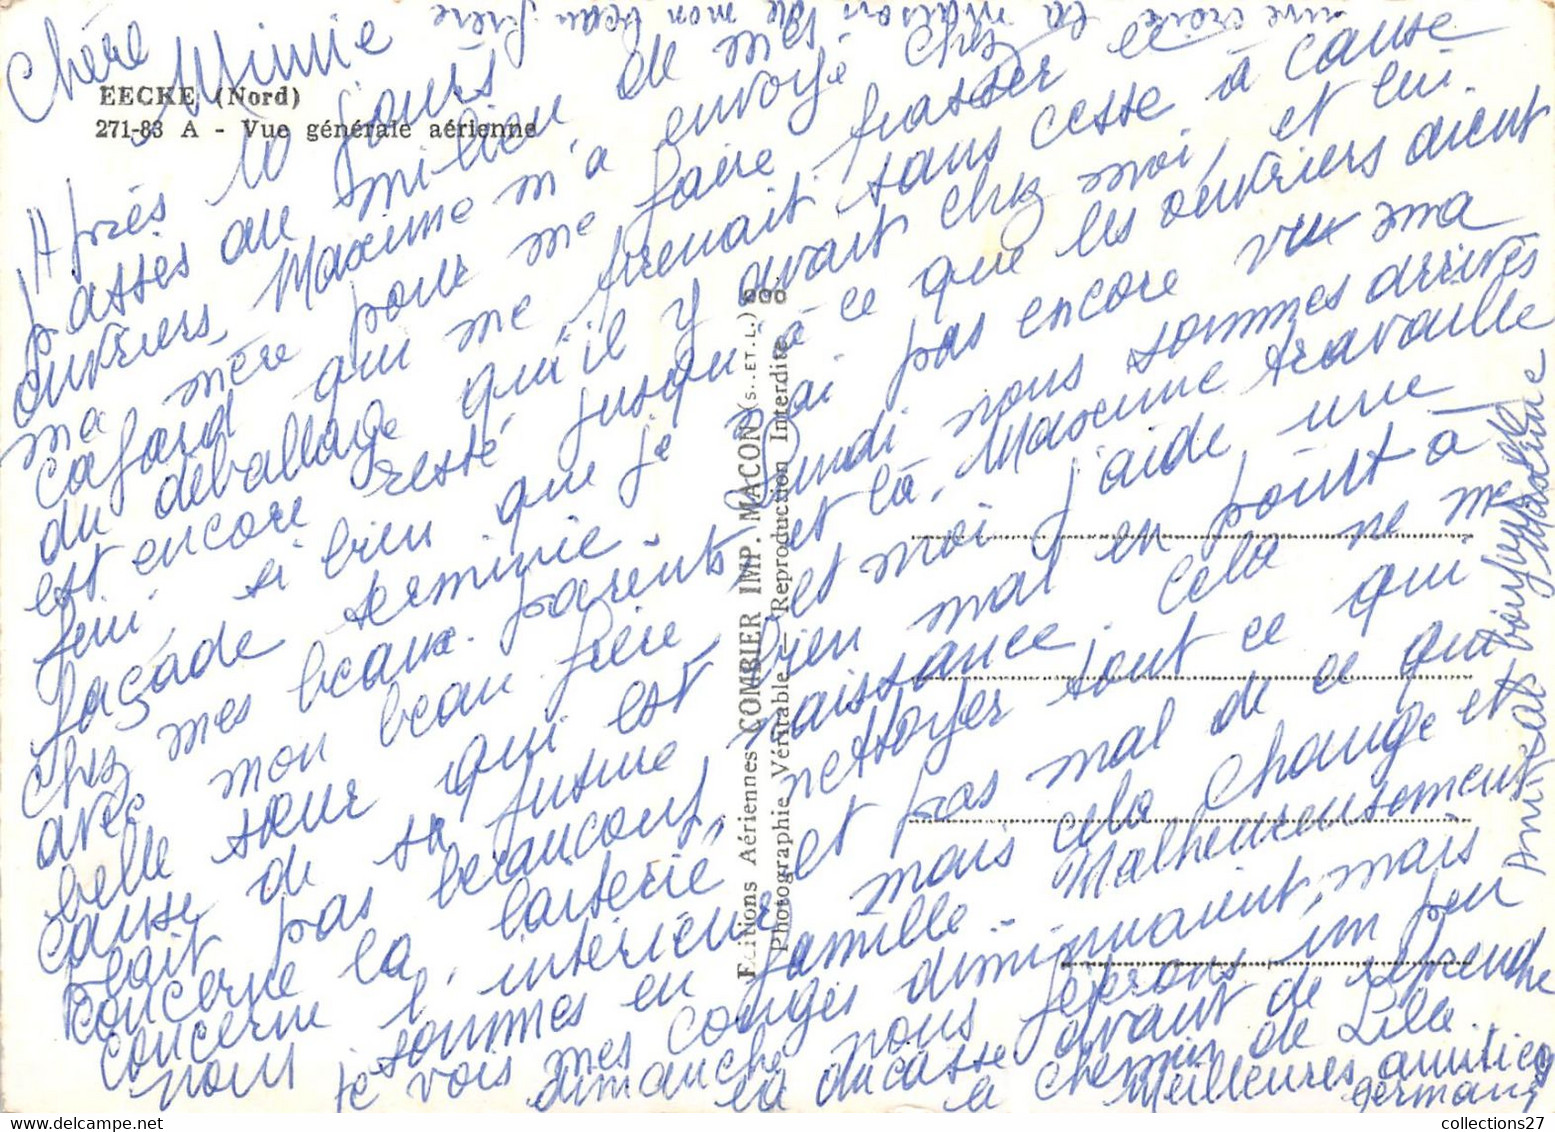 une croix la maison de mon beau frère
Chère Minnie
EECKE (Nord)
271-83 A - Vue générale aérienne
Après 10 jours
passés au milieu de
ouvriers, Maxime m'a envoyé chez
ma mère pour me faire passer le
cafard qui me prenait sans cesse à cause
du déballage qu'il y avait chez moi, et lui
est encore resté jusqu'à ce que les ouvriers aient
fini, si bien que je n'ai pas encore vu ma
façade terminée. Lundi nous sommes arrivés
chez mes beaux-parents et là, Maxime travaille
avec mon beau-frère, et moi j'aide une
belle sœur qui est bien mal en point à
cause de sa future naissance. Cela ne me
plait pas beaucoup, nettoyer tout ce qui
concerne la laiterie et pas mal de ce qui
concerne l'intérieur mais cela change et
nous sommes en famille. Malheureusement
je vois mes congés diminuaient, mais
dimanche nous ferons un peu
la ducasse avant de reprendre
le chemin de Lille.
Meilleures amitiés
Germany
Editions Aériennes COMBIER IMP. MACON (S.-ET-L.)
Photographie Véritable - Reproduction Interdite